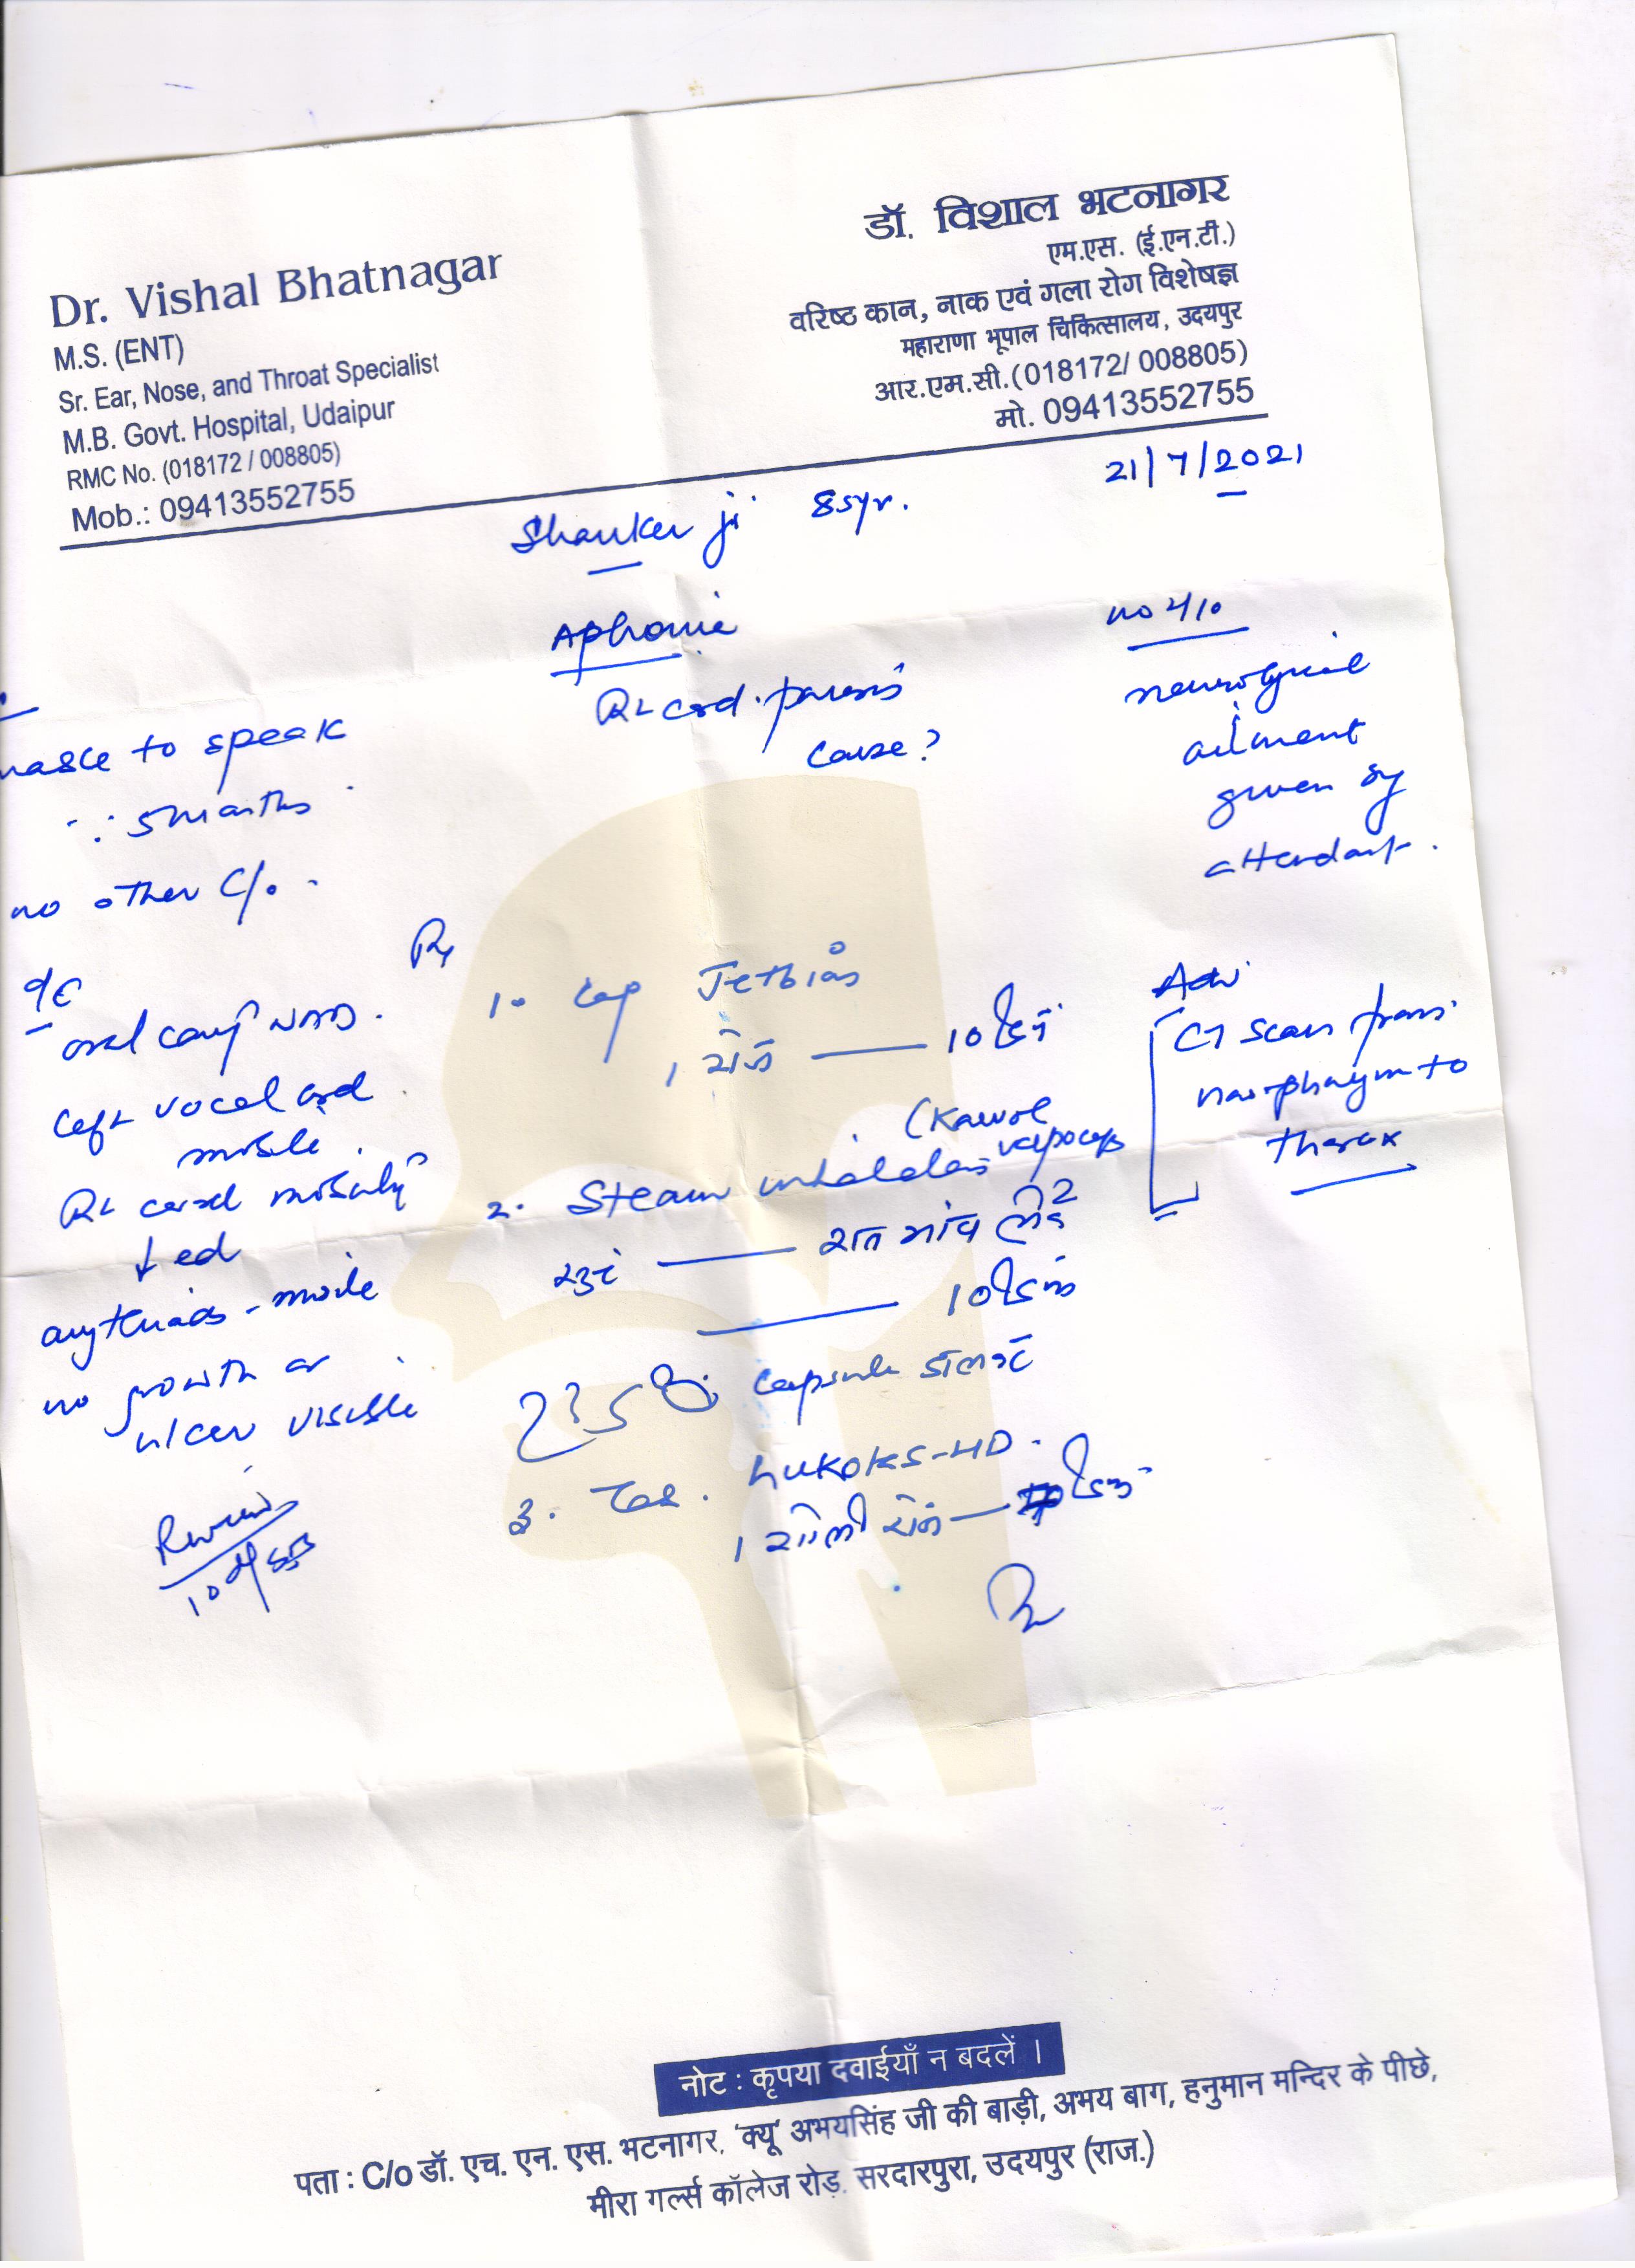 Dr. Vishal Bhatnagar
M.S. (ENT)
Sr. Ear, Nose, and Throat Specialist
M.B. Govt. Hospital, Udaipur
RMC No. (018172 / 008805)
Mob.: 09413552755
डॉ. विशाल भटनागर
एम.एस. (ई.एन.टी.)
वरिष्ठ कान, नाक एवं गला रोग विशेषज्ञ
महाराणा भूपाल चिकित्सालय, उदयपुर
आर.एम.सी.(018172/ 008805)
मो. 09413552755
21/7/2021
Shanker ji 85yr.
Aphonia
Rt cord paresis
cause?
no H/o
neurological
ailment
given by
attendant.
to speak
5 months
no other C/o.
O/E
oral cavity NAD.
Left vocal cord
mobile.
Rt cord mobility
↓ed
arytenoids - mobile
no growth or
ulcer visible
Review
10
Rx
1. Cap
1 रोज — 10 दिन
2. Steam inhalation
(Karvol
— 10 दिन
capsule डालकर
3. Tab.
1 गोली रोज —
Adv
CT scan from
nasopharynx to
thorax
नोट : कृपया दवाईयाँ न बदलें ।
पता : C/o डॉ. एच. एन. एस. भटनागर, 'क्यू' अभयसिंह जी की बाड़ी, अभय बाग, हनुमान मन्दिर के पीछे,
मीरा गर्ल्स कॉलेज रोड़, सरदारपुरा, उदयपुर (राज.)